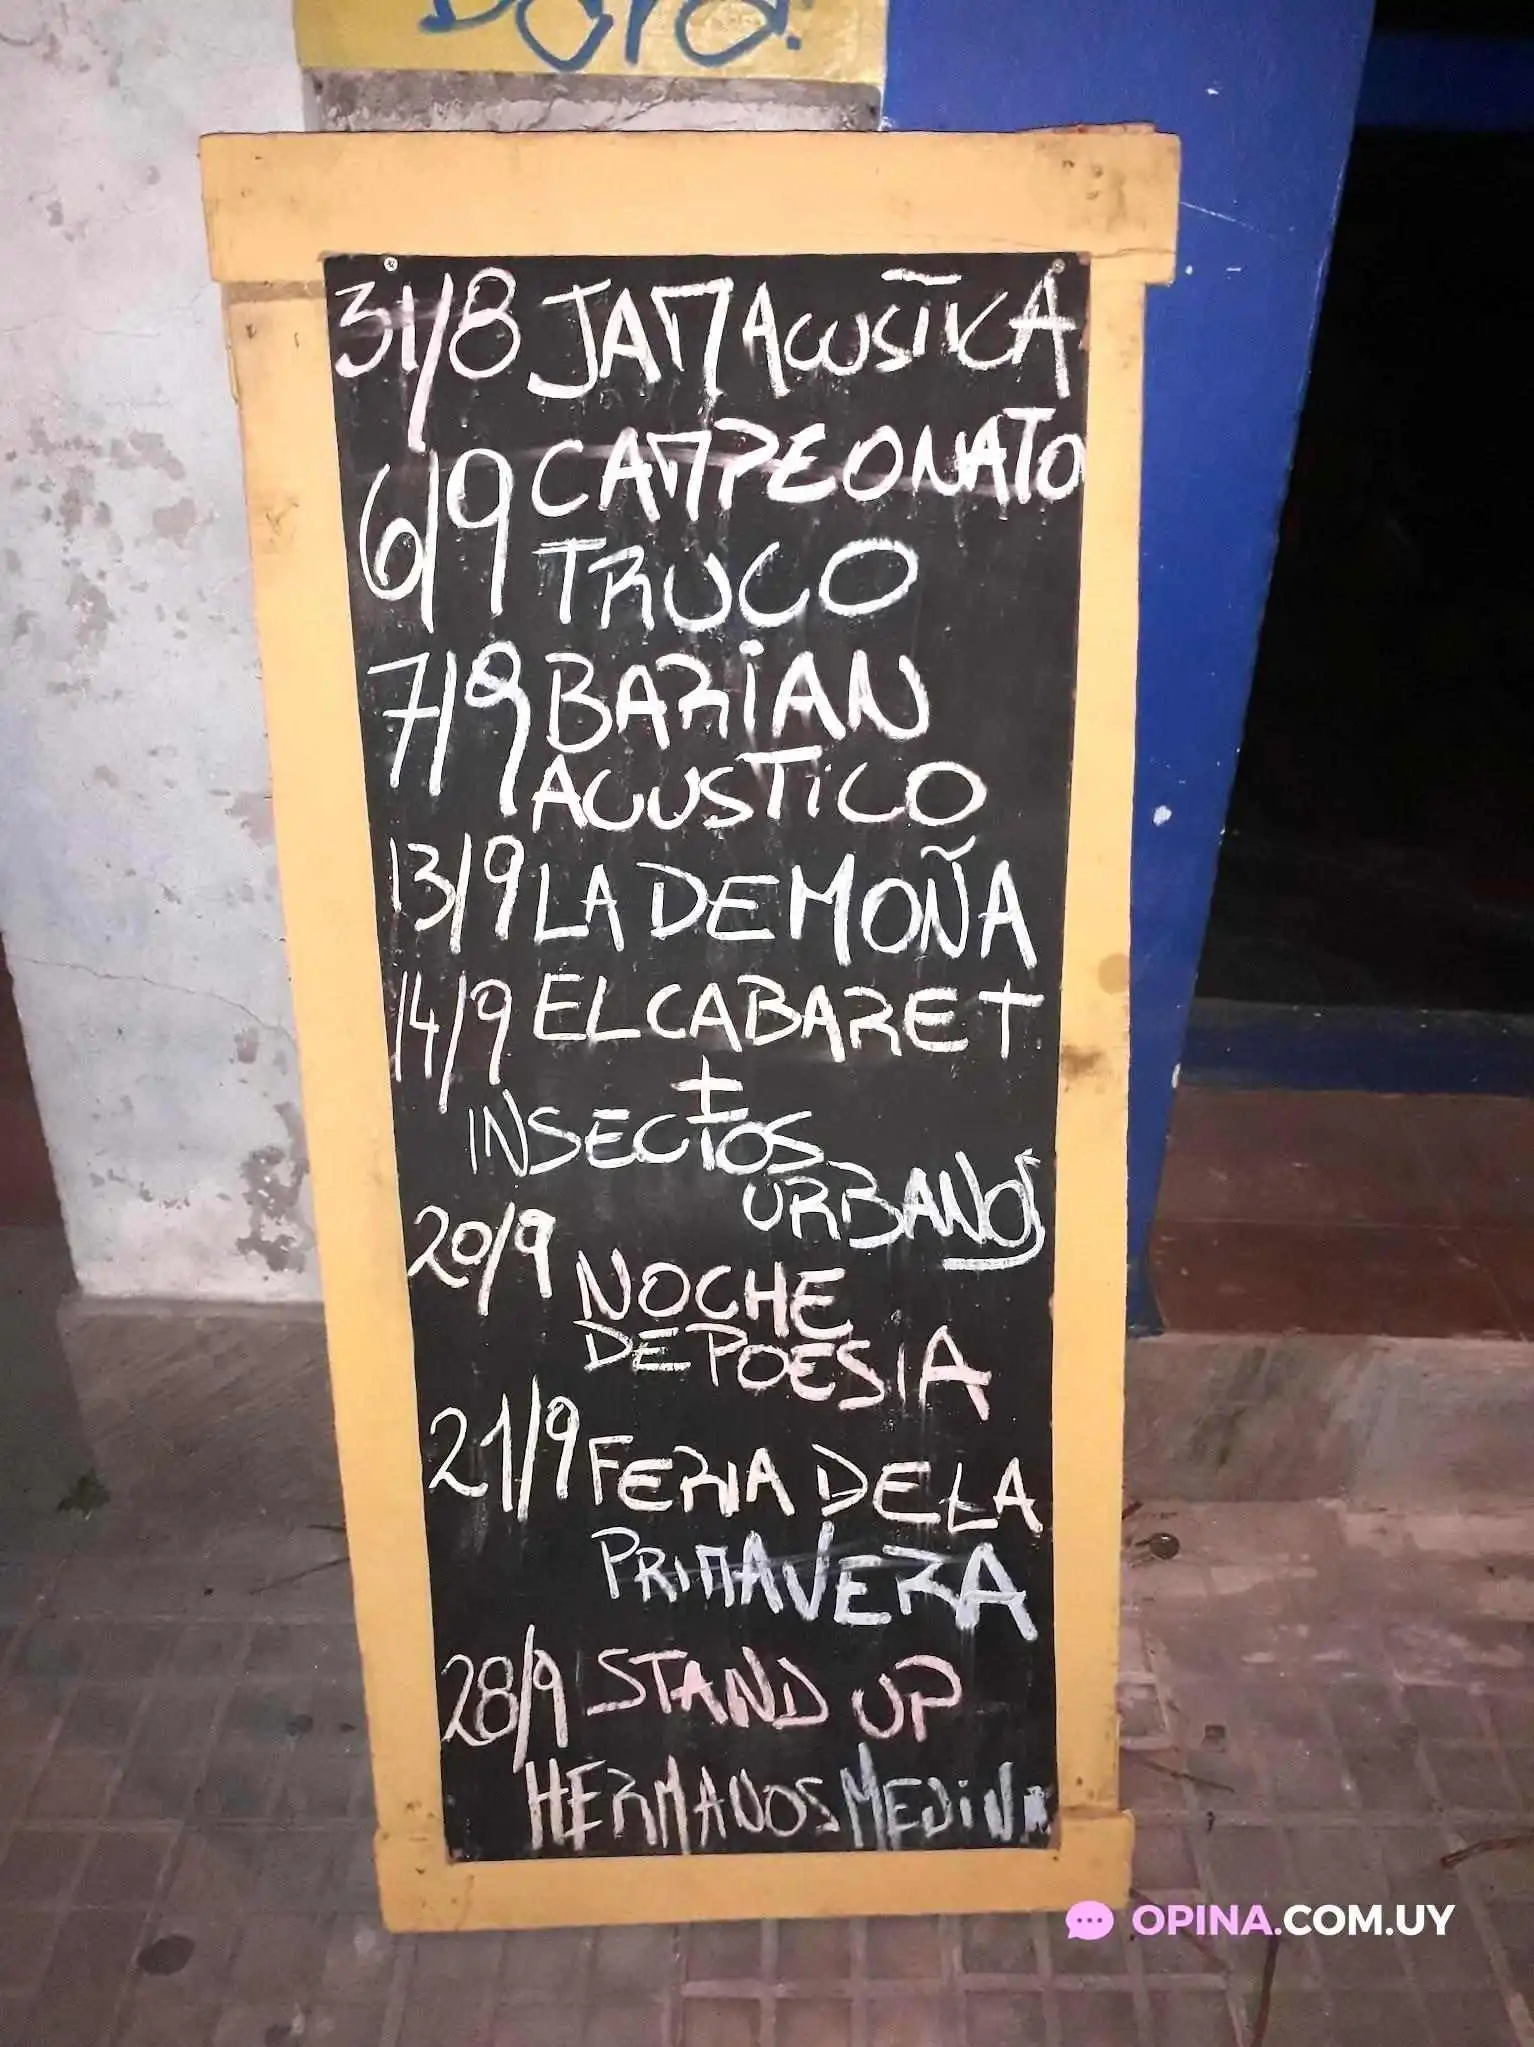 31/8 JAM ACUSTICA
6/9 CAMPEONATO
TRUCO
7/9 BARIAN
ACUSTICO
13/9 LA DEMOÑA
14/9 EL CABARET
+
INSECTOS
URBANOS
20/9 NOCHE
DE POESIA
21/9 FERIA DE LA
PRIMAVERA
28/9 STAND UP
HERMANOS MEDINA
OPINA.COM.UY